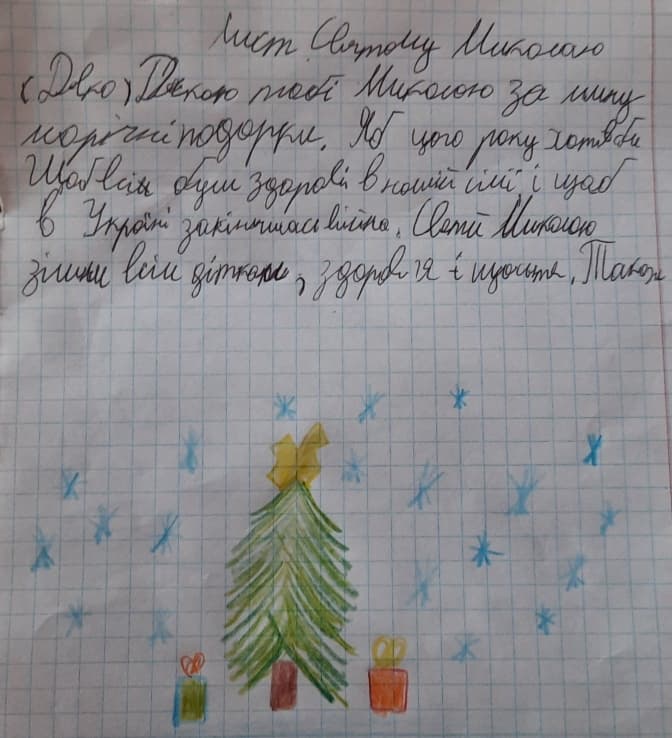 Лист Святому Миколаю
(Дяю) Дякою тобі Миколаю за мину
норічні подарки. Яб цього року хотів би
Щоб всі були здорові в нашій сімї і щоб
в Україні закінчилась війна. Святй Миколаю
зішли всім діткам, здоров'я і щастя. Також